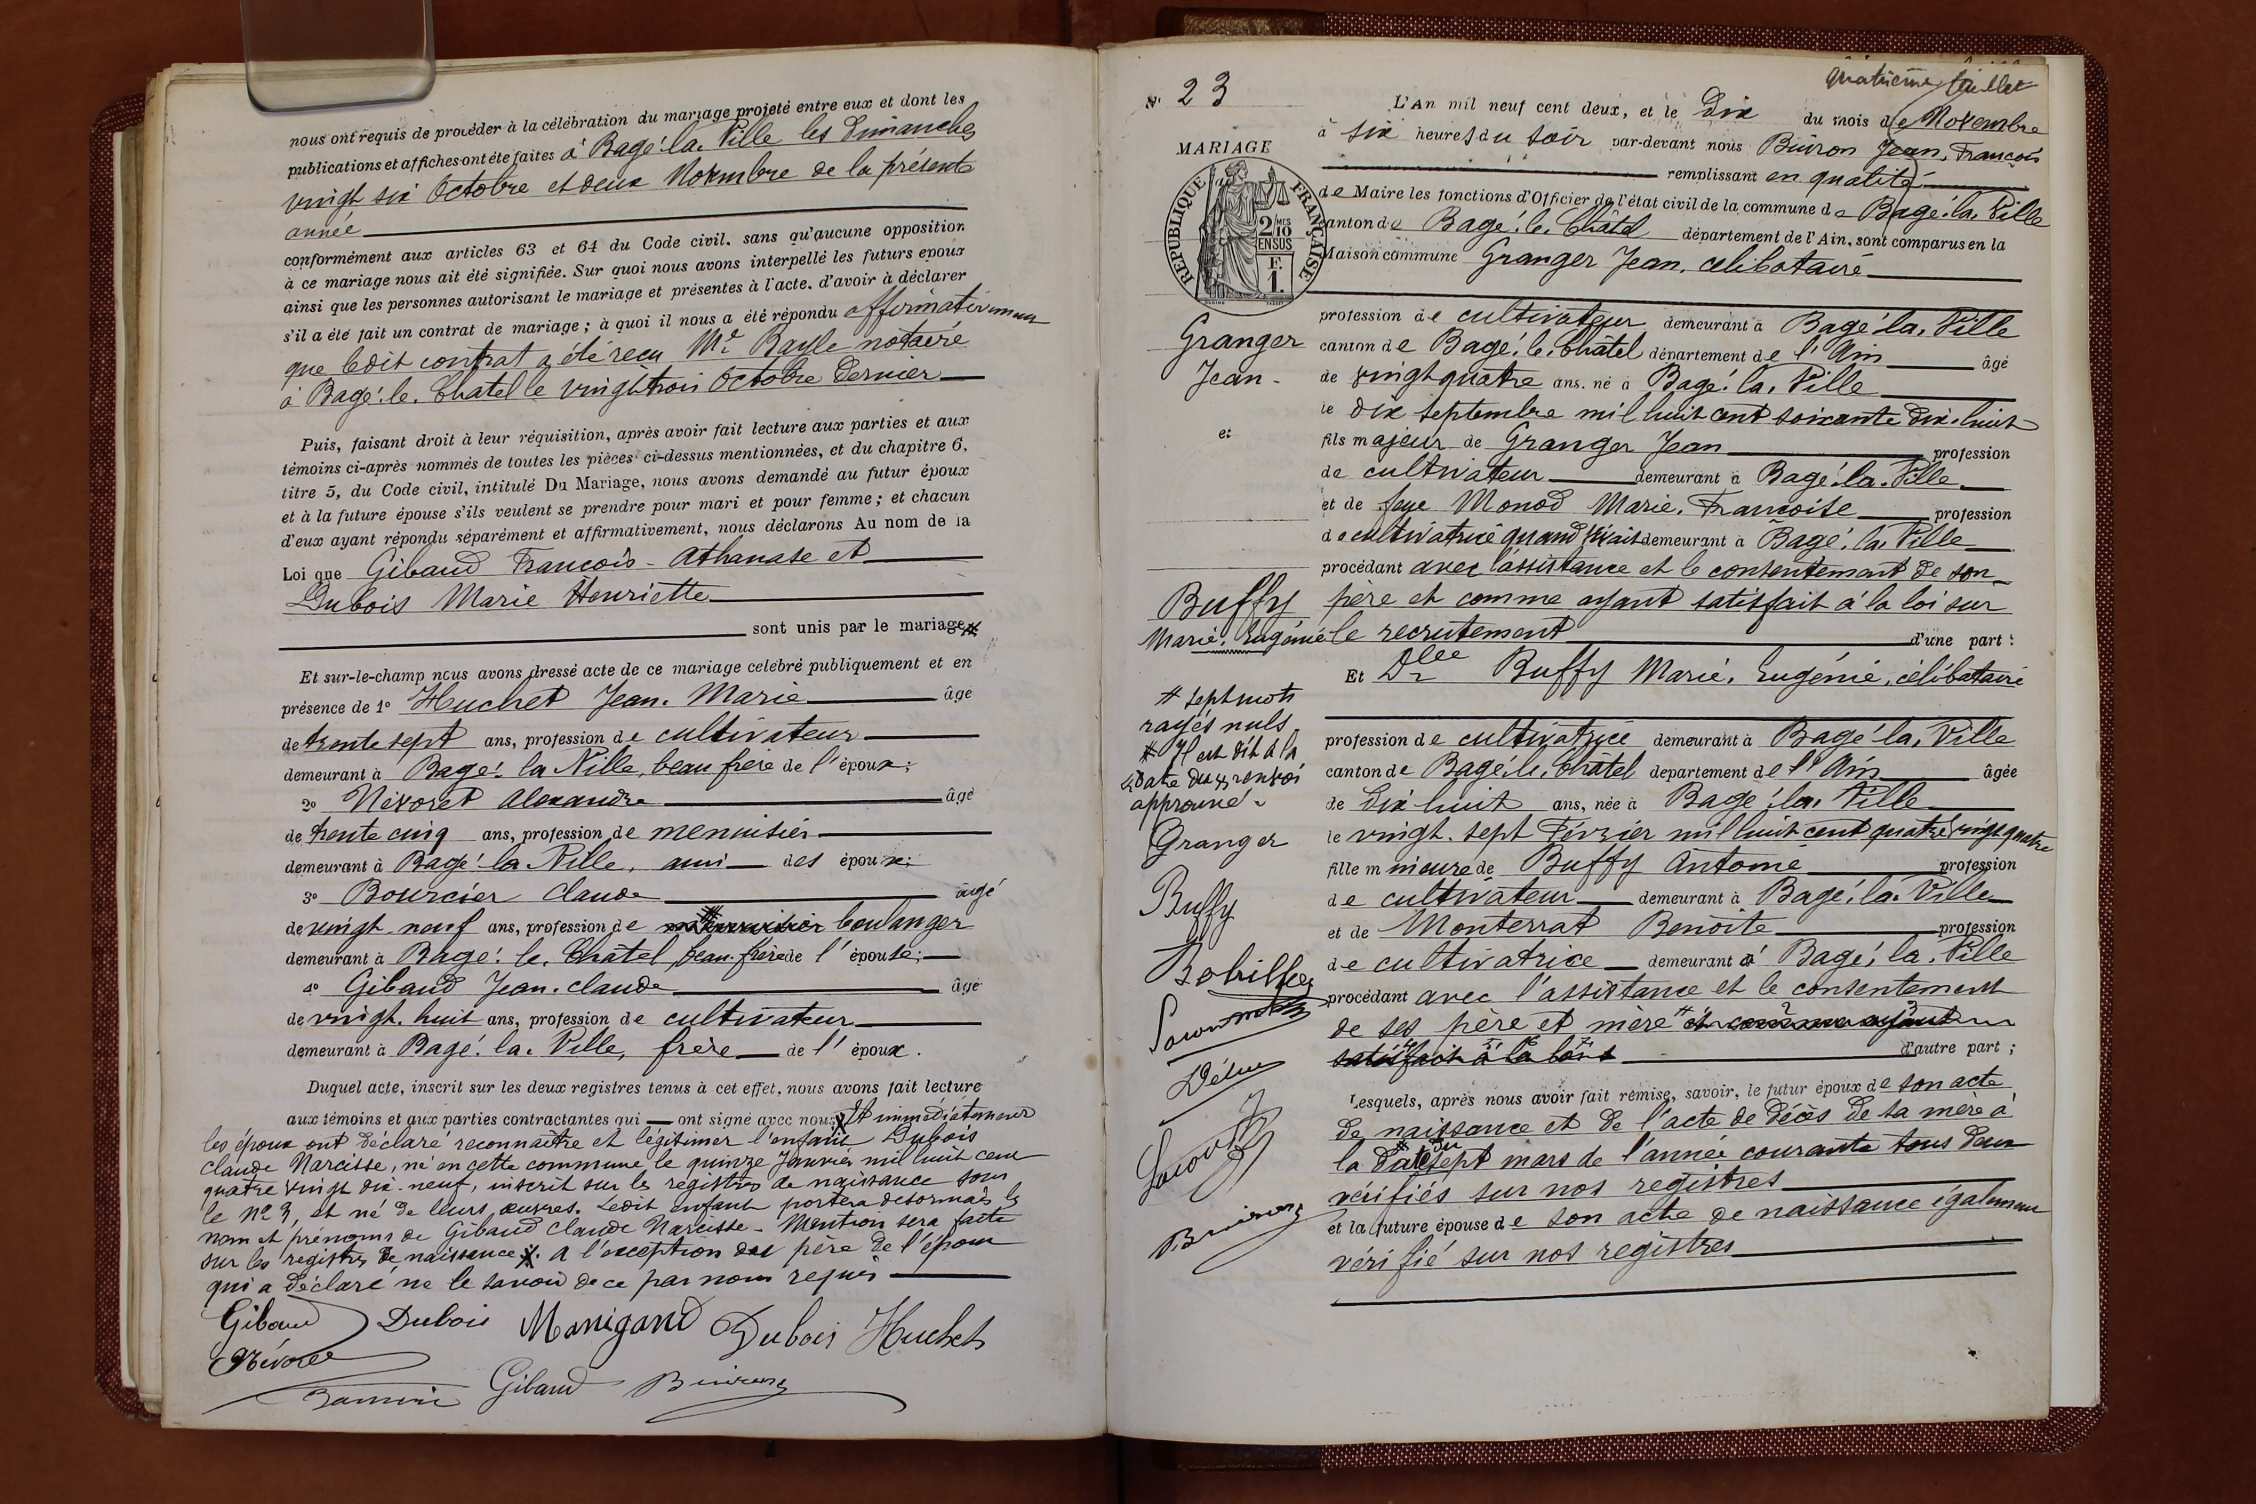 nous ont requis de procéder à la célébration du mariage projeté entre eux et dont les
publications et affiches ont été faites à Bagé-la-Ville les Dimanches
vingt six Octobre et deux Novembre de la présente
année
conformément aux articles 63 et 64 du Code civil, sans qu'aucune opposition
à ce mariage nous ait été signifiée. Sur quoi nous avons interpellé les futurs epoux
ainsi que les personnes autorisant le mariage et présentes à l'acte, d'avoir à déclarer
s'il a été fait un contrat de mariage ; à quoi il nous a été répondu affirmativement
que ledit contrat a été reçu Me Bayle notaire
à Bagé-le-Chatel le vingt trois Octobre dernier
Puis, faisant droit à leur réquisition, après avoir fait lecture aux parties et aux
témoins ci-après nommés de toutes les pièces ci-dessus mentionnées, et du chapitre 6,
titre 5, du Code civil, intitulé Du Mariage, nous avons demandé au futur époux
et à la future épouse s'ils veulent se prendre pour mari et pour femme ; et chacun
d'eux ayant répondu séparément et affirmativement, nous déclarons Au nom de la
Loi que Gibaud François-Athanase et
Dubois Marie Henriette
sont unis par le mariage
Et sur-le-champ nous avons dressé acte de ce mariage celebré publiquement et en
présence de 1° Huchet Jean-Marie âgé
de trente sept ans, profession de cultivateur
demeurant à Bagé-la Ville, beau frère de l'époux;
2° Névoret Alexandre âgé
de trente cinq ans, profession de menuisier
demeurant à Bagé-la Ville, ami des époux;
3° Bourcier Claude âgé
de vingt neuf ans, profession de menuisier boulanger
demeurant à Bagé-le-Châtel, beau-frère de l'épouse;
4° Gibaud Jean-Claude âgé
de vingt-huit ans, profession de cultivateur
demeurant à Bagé-la-Ville, frère de l'époux.
Duquel acte, inscrit sur les deux registres tenus à cet effet, nous avons fait lecture
aux témoins et aux parties contractantes qui ont signé avec nous Et immédiatement
les époux ont déclaré reconnaître et légitimer l'enfant Dubois
Claude Narcisse, né en cette commune le quinze Janvier mil huit cent
quatre vingt dix-neuf, inscrit sur les registres de naissance sous
le N° 3, et né de leurs œuvres. Ledit enfant portera désormais les
nom et prénoms de Gibaud Claude Narcisse - Mention sera faite
sur les registres de naissance. A l'exception du père de l'époux
qui a déclaré ne le savoir de ce par nous requis
Gibaud Dubois Manigand Dubois Huchet
Névoret
Gibaud Buiron
quatrième feuillet
N° 23
MARIAGE
RÉPUBLIQUE FRANÇAISE
2/10 EN SUS
F. 1.
L'An mil neuf cent deux, et le Dix du mois de Novembre
à six heures du soir par-devant nous Buiron Jean, François
remplissant en qualité
de Maire les fonctions d'Officier de l'état civil de la commune de Bagé-la-Ville
canton de Bagé-le-Châtel département de l'Ain, sont comparus en la
Maison commune Granger Jean, célibataire
profession de cultivateur demeurant à Bagé-la-Ville
canton de Bagé-le-Châtel département de l'Ain âgé
de vingt quatre ans, né à Bagé-la-Ville
le dix septembre mil huit cent soixante dix-huit
fils majeur de Granger Jean profession
de cultivateur demeurant à Bagé-la-Ville
et de feue Monod Marie-Françoise profession
de cultivatrice quand vivait demeurant à Bagé-la-Ville
procédant avec l'assistance et le consentement de son
père et comme ayant satisfait à la loi sur
le recrutement d'une part :
Et Dlle Buffy Marie, Eugénie, célibataire
profession de cultivatrice demeurant à Bagé-la-Ville
canton de Bagé-le-Châtel département de l'Ain âgée
de Dix huit ans, née à Bagé-la-Ville
le vingt-sept Février mil huit cent quatre vingt quatre
fille mineure de Buffy Antoine profession
de cultivateur demeurant à Bagé-la-Ville
et de Monterrat Benoîte profession
de cultivatrice demeurant à Bagé-la-Ville
procédant avec l'assistance et le consentement
de ses père et mère et comme ayant
satisfait à la loi d'autre part ;
Lesquels, après nous avoir fait remise, savoir, le futur époux de son acte
de naissance et de l'acte de décès de sa mère à
la date du sept mars de l'année courante tous deux
vérifiés sur nos registres
et la future épouse de son acte de naissance également
vérifié sur nos registres
Granger
Jean
et
Buffy
Marie, Eugénie
sept mots
rayés nuls
Il est dit à la
date du renvoi
approuvé
Granger
Buffy
Buiron